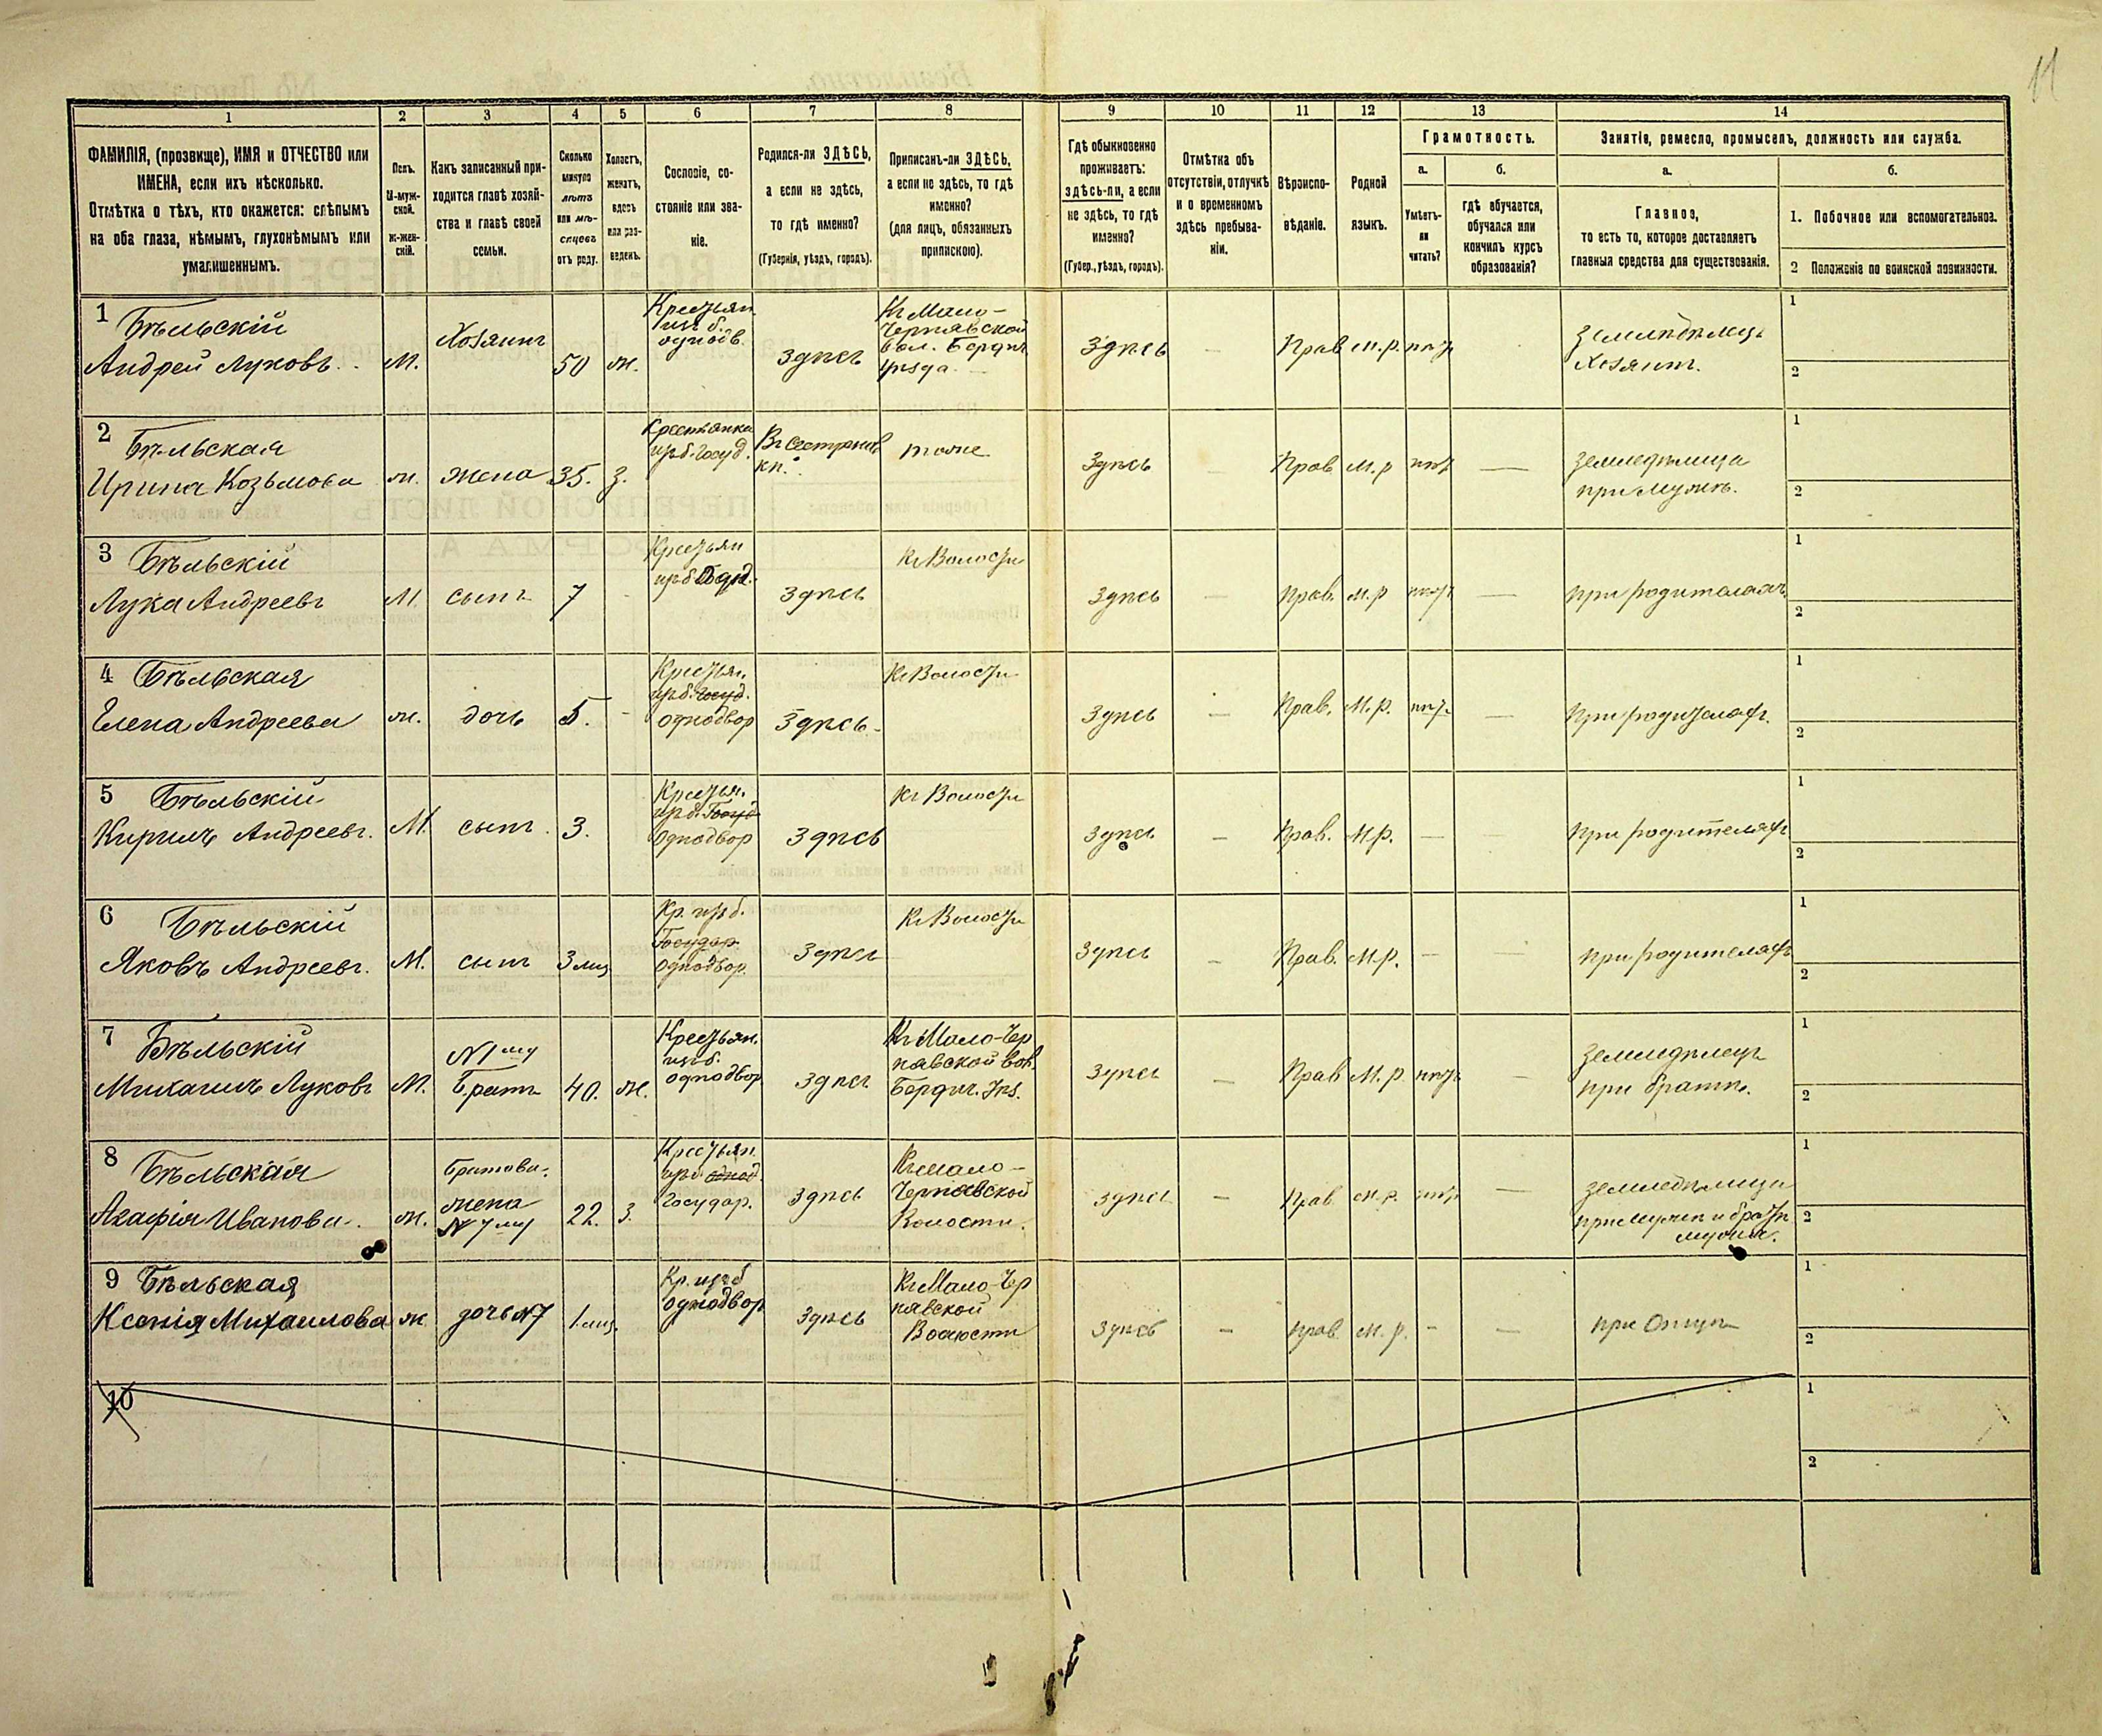 11
1
2
3
4
5
6
7
8
9
10
11
12
13
14
ФАМИЛІЯ, (прозвище), ИМЯ и ОТЧЕСТВО или
ИМЕНА, если ихъ нѣсколько.
Отмѣтка о тѣхъ, кто окажется: слѣпымъ
на оба глаза, нѣмымъ, глухонѣмымъ или
умалишеннымъ.
Полъ.
М-муж-
ской.
ж-жен-
скій.
Какъ записанный при-
ходится главѣ хозяй-
ства и главѣ своей
семьи.
Сколько
минуло
лѣтъ
или мѣ-
сяцевъ
отъ роду.
Холостъ,
женатъ,
вдовъ
или раз-
веденъ.
Сословіе, со-
стояніе или зва-
ніе.
Родился-ли ЗДѢСЬ,
а если не здѣсь,
то гдѣ именно?
(Губернія, уѣздъ, городъ).
Приписанъ-ли ЗДѢСЬ,
а если не здѣсь, то гдѣ
именно?
(для лицъ, обязанныхъ
припискою).
Гдѣ обыкновенно
проживаетъ:
здѣсь-ли, а если
не здѣсь, то гдѣ
именно?
(Губер., уѣздъ, городъ).
Отмѣтка объ
отсутствіи, отлучкѣ
и о временномъ
здѣсь пребыва-
ніи.
Вѣроиспо-
вѣданіе.
Родной
языкъ.
Грамотность.
а.
Умѣетъ-
ли
читать?
б.
гдѣ обучается,
обучался или
кончилъ курсъ
образованія?
Занятія, ремесло, промыселъ, должность или служба.
а.
Главное,
то есть то, которое доставляетъ
главныя средства для существованія.
б.
1. Побочное или вспомогательное.
2 Положеніе по воинской повинности.
1 Бѣльскій
Андрей Луковъ
М.
Хозяинъ
50
ж.
Крестьян.
изъ б.
однодв.
Здѣсь
Къ Мало-
Чернявской
вол. Бердич.
уѣзда
Здѣсь
—
Прав
М.р.
нѣтъ
Земледѣлецъ
Хозяинъ.
1
2
2 Бѣльская
Ирина Козьмова
ж.
жена
35.
З.
Крестьянка
изъ б. госуд.
тоже
Здѣсь
Прав
М.р
нѣтъ
—
Земледѣлица
при мужѣ.
1
2
3 Бѣльскій
Лука Андреевъ
М.
сынъ
7
Крестьян
изъ б.
Здѣсь
Къ Волости
Здѣсь
—
Прав.
М.р
нѣтъ
—
При родителяхъ
1
2
4 Бѣльская
Елена Андреева
ж.
дочь
5.
-
Крестьян.
изъ б. госуд.
однодвор
Здѣсь
Къ Волости
Здѣсь
—
Прав.
М.р.
нѣт.
—
При родителяхъ.
1
2
5 Бѣльскій
Кирилъ Андреевъ.
М.
сынъ.
3.
Крестьян.
изъ б. Госуд
Однодвор
Здѣсь
Къ Волости
Здѣсь
—
Прав.
М.р.
—
При родителяхъ
1
2
6 Бѣльскій
Яковъ Андреевъ.
М.
сынъ
3 мѣц
Кр. изъ б.
Государ.
Однодвор.
Здѣсь
Къ Волости
Здѣсь
—
Прав.
М.р.
—
При родителяхъ
1
2
7 Бѣльскій
Михаилъ Луковъ
М.
№1му
Братъ
40.
ж.
Крестьян.
изъ б.
однодвор
Здѣсь
Къ Мало-Чер
нявской вол.
Бердич. Уѣз.
Здѣсь
—
Прав
М.р.
нѣтъ
—
Земледѣлецъ
при братѣ.
1
2
8 Бѣльская
Агафія Иванова.
ж.
Братова.
жена
№7му
22.
З.
Крестьян.
изъ б. однод.
Государ.
Здѣсь
Къ Мало-
Чернявской
Волости.
Здѣсь
—
Прав
М.р.
нѣтъ
—
Земледѣлица
при мужѣ и братѣ
мужа.
1
2
9 Бѣльская
Ксенія Михаилова
ж
дочь №7
1 мѣц.
Кр. изъ б
однодвор
Здѣсь
Къ Мало-Чер
нявской
Волости
Здѣсь
—
прав
М.р.
-
—
при Отцѣ
1
2
10
1
2